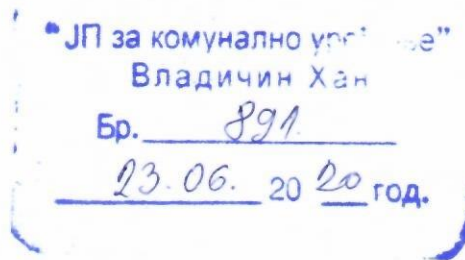 "ЈП за комунално
Владичин Хан
Бр. 891.
23.06. 2020 год.